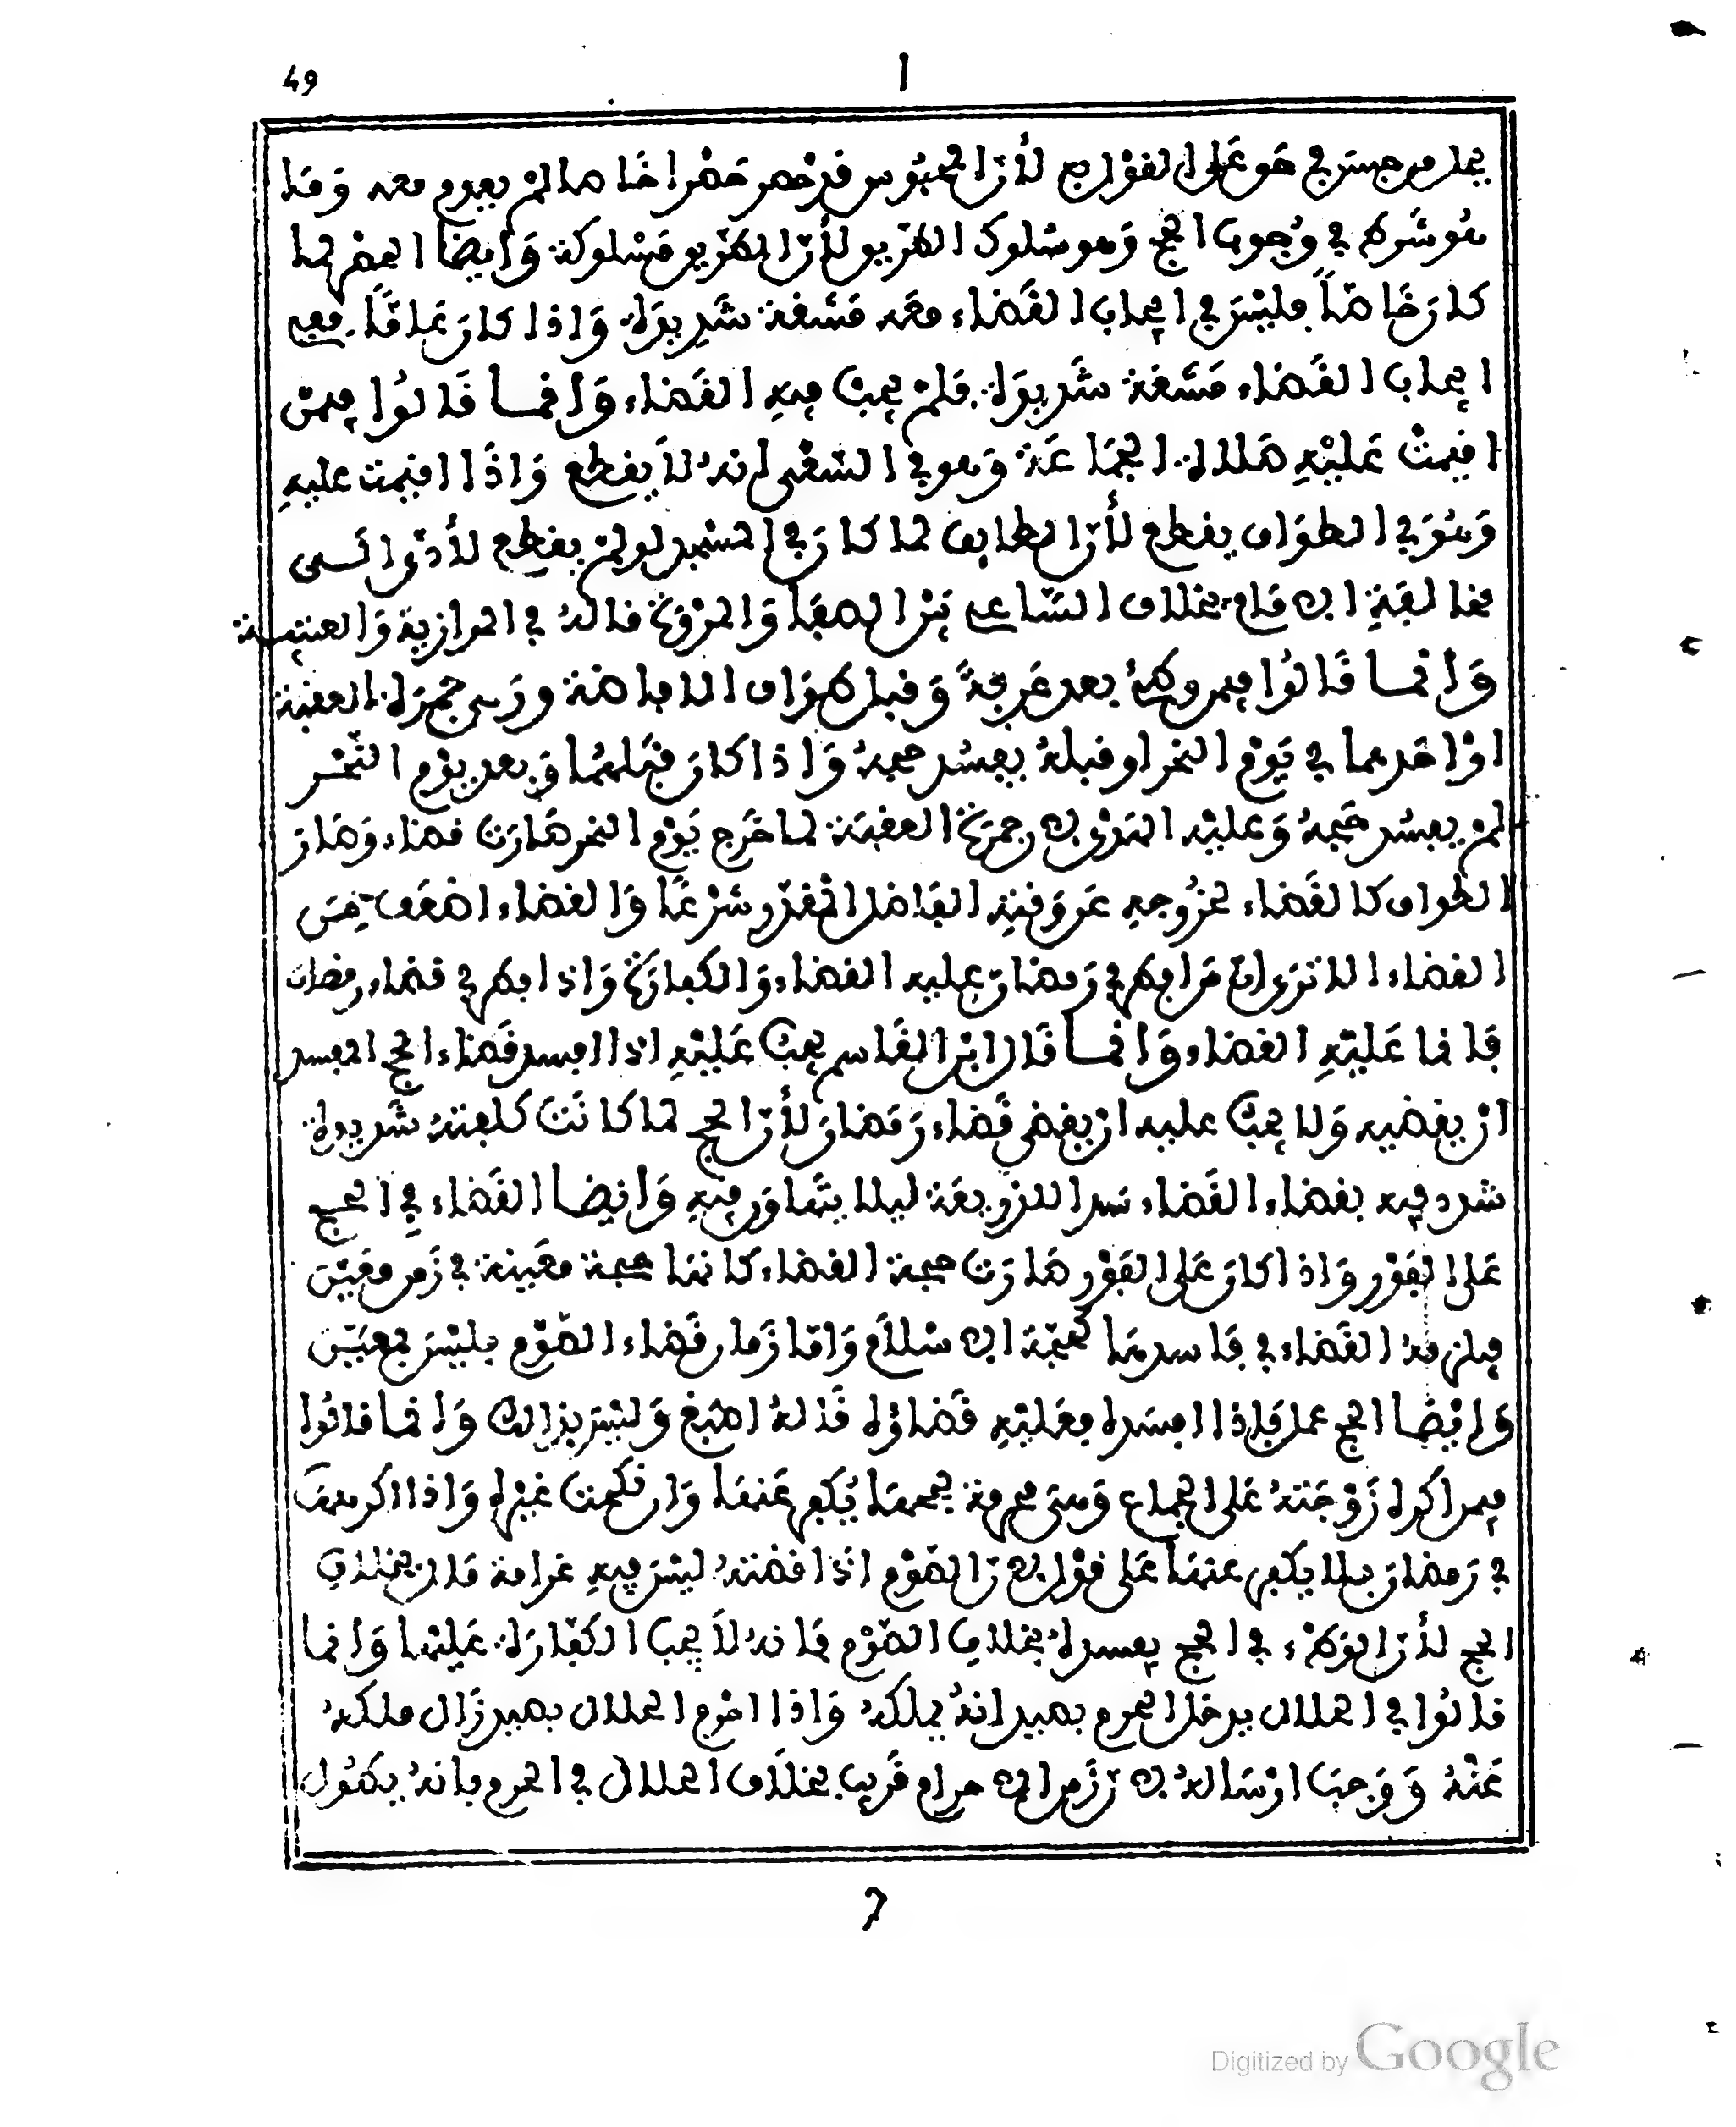 49
ا
بخلاف من حبس في حق على القول به لأن المحبوس قد حصر حصرا خاصا لم يعدم معه وما
هو شرط في وجوب الحج وهو سلوك الطريق لأن الطريق مسلوكة وأيضا الحصر لما
كان خاصا فليس في إيجاب القضاء معه مشقة شديدة وإذا كان عاما ففي
إيجاب القضاء مشقة شديدة فلم يجب فيه القضاء وإنما قالوا فيمن
اقيمت عليه صلاة الجماعة وهو في السعي إنه لا يقطع وإذا اقيمت عليه
وهو في الطواف يقطع لأن الطايف لما كان في المسجد لو لم يقطع لأدى إلى
مخالفة الإمام بخلاف الساعي بين الصفا والمروة قاله في الموازية والعتبية
وإنما قالوا فيمن وطئ بعد عرفة وقبل طواف الافاضة ورمي جمرة العقبة
او احدهما في يوم النحر او قبله يفسد حجه وإذا كان قبلهما وبعد يوم النحر
لم يفسد حجه وعليه الهدي لأن جمرة العقبة لما خرج يوم النحر صارت قضاء وصار
الطواف كالقضاء لخروجه عن وقته الفاضل المقدر شرعا والقضاء اضعف من
القضاء الا ترى ان من افطر في رمضان عليه القضاء والكفارة وإذا افطر في قضاء رمضان
فإنما عليه القضاء وإنما قال ابن القاسم يجب عليه اذا افسد قضاء الحج المفسد
ان يقضيه ولا يجب عليه ان يقضي قضاء رمضان لأن الحج لما كانت كلفته شديدة
شدد فيه بقضاء القضاء سدا للذريعة ليلا يتهاون فيه وأيضا القضاء في الحج
على الفور وإذا كان على الفور صارت حجة القضاء كانها حجة معينة في زمن معين
فيلزمه القضاء في فاسدها كحجة الإسلام وإما زمان قضاء الصوم فليس بمعين
وأيضا الحج عمل فإذا افسده فعليه قضاؤه قاله اصبغ وليس بذلك وإنما قالوا
فيمن اكره زوجته على الجماع وهي محرمة يحجها يكفر عنها وان نكحت غيره وإذا اكرهها
في رمضان فلا يكفر عنها على قول لأن الصوم اذا قضته ليس فيه غرامة مال بخلاف
الحج لأن الوطء في الحج يفسده بخلاف الصوم فإنه لا يجب الكفارة عليها وإنما
قالوا في الحلال يدخل الحرم بصيد انه يملكه وإذا احرم الحلال بصيد زال ملكه
عنه ووجب ارساله لأن زمن الإحرام قريب بخلاف الحلال في الحرم فإنه يطول
7
Digitized by Google